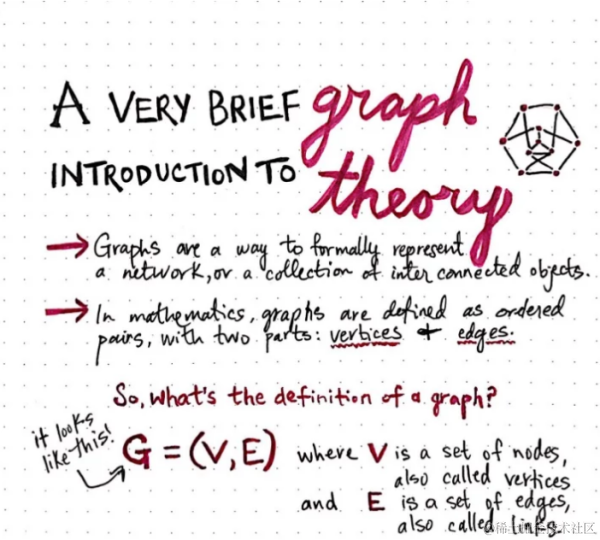 A VERY BRIEF graph
INTRODUCTION TO theory
→ Graphs are a way to formally represent
a network, or a collection of inter connected objects.
→ In mathematics, graphs are defined as ordered
pairs, with two parts: vertices + edges.
So, what's the definition of a graph?
it looks
like this!
G = (V, E) where V is a set of nodes,
also called vertices
and E is a set of edges,
also called links.